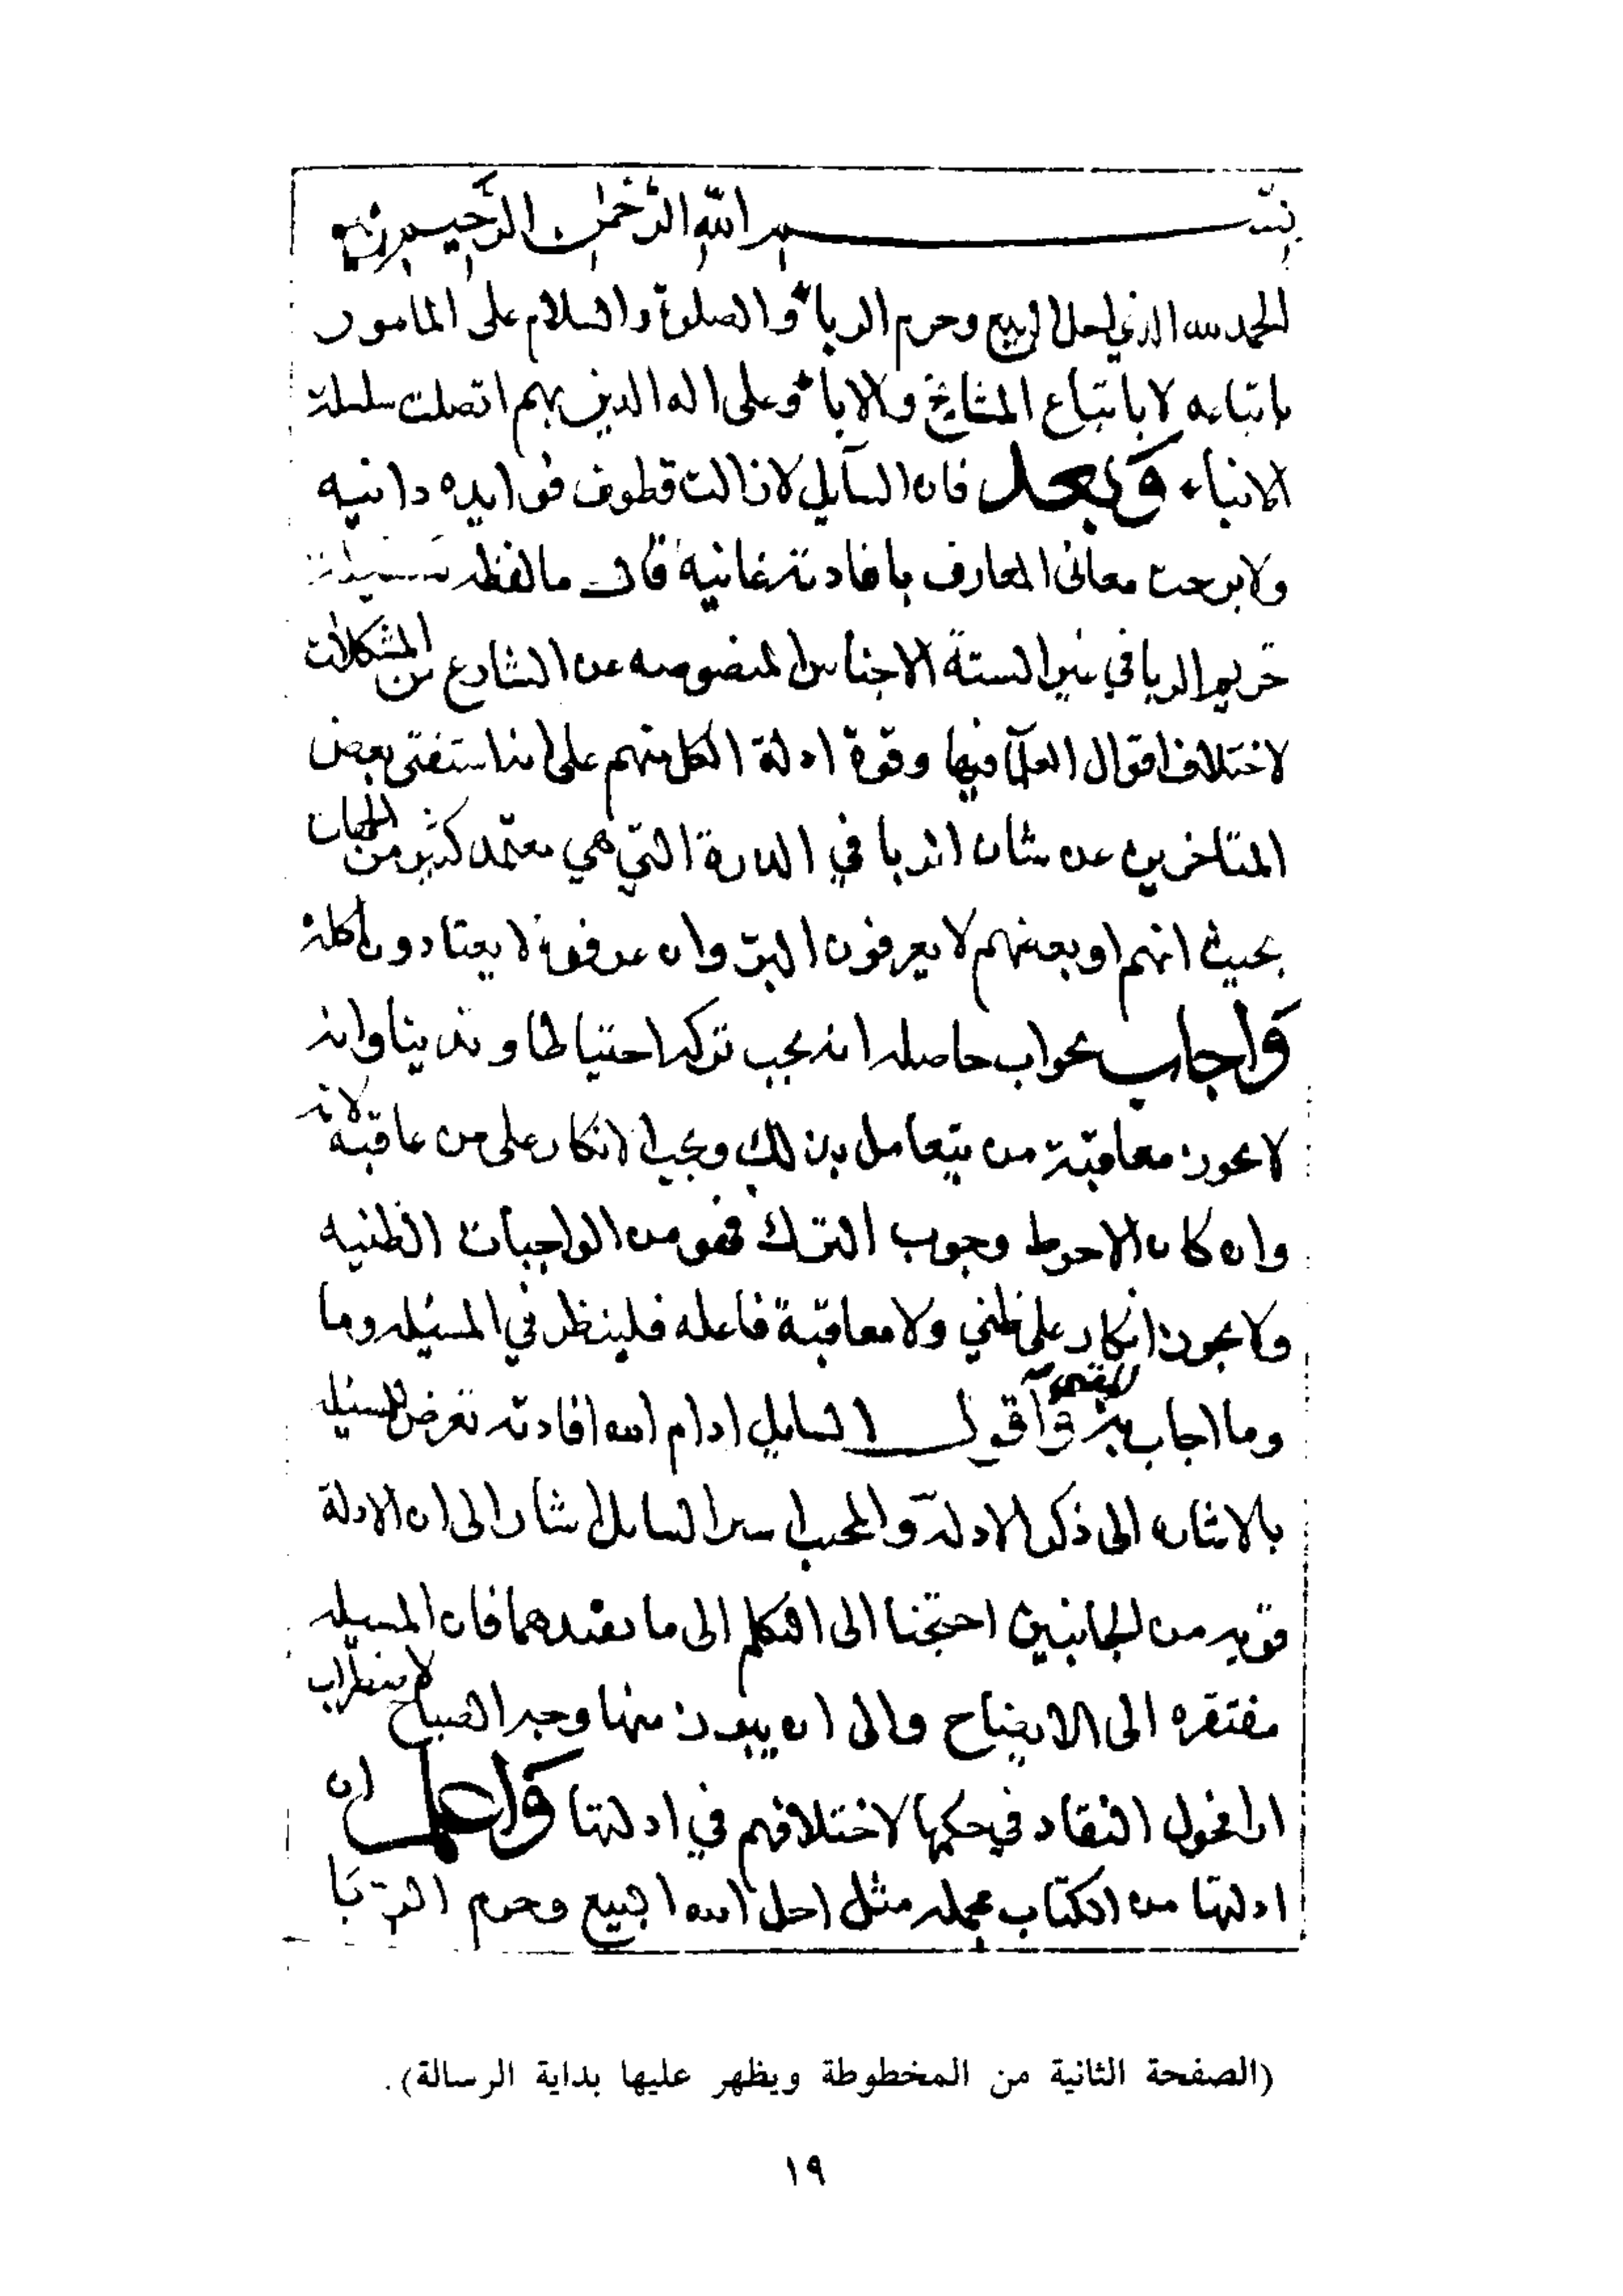 بسم الله الرحمن الرحيم
الحمد لله الذي احل البيع وحرم الربا والصلوة والسلام على المامور
باتباعه لا باتباع المشايخ والابا وعلى اله الذين بهم اتصلت سلسلة
الانباء وبعد فان السآيل لا زالت قطوف فوايده دانيه
ولا برحت معاني المعارف بافادته غانية قال ما لفظه
تحريم الربا في غير الستة الاجناس المنصوصه عن الشارع من المشكلات
لاختلاف اقوال العلما فيها وقوة ادلة الكل منهم على انه استفتى بعض
المتاخرين عن شان الربا في الذرة التي هي معتمد كثير من الجهات
بحيث انهم او بعضهم لا يعرفون البر وان عرفوه لا يعتادون اكله
واجاب بجواب حاصله انه يجب تركه احتياطا وتدينا وانه
لا يجوز معاقبة من يتعامل بذلك ويجب الانكار على من عاقبه لانه
وان كان الاحوط وجوب الترك فهو من الواجبات الظنيه
ولا يجوز انكار على ظني ولا معاقبة فاعله فلينظر في المسئله وما
وما اجاب به واقول السايل ادام الله افادته تعرض للمسئله
بالاشاره الى ذكر الادلة والمجيب السايل اشار الى ان الادلة
قويه من الجانبين احتجنا الى التكلم الى ما فان المسيله
مفتقره الى الايضاح والى ان يبرز منها وجه الصباح لاضطراب
ارا فحول النقاد في حكمها لاختلافهم في ادلتها واعلم ان
ادلتها من الكتاب مجمله مثل احل الله البيع وحرم الربا
(الصفحة الثانية من المخطوطة ويظهر عليها بداية الرسالة).
١٩